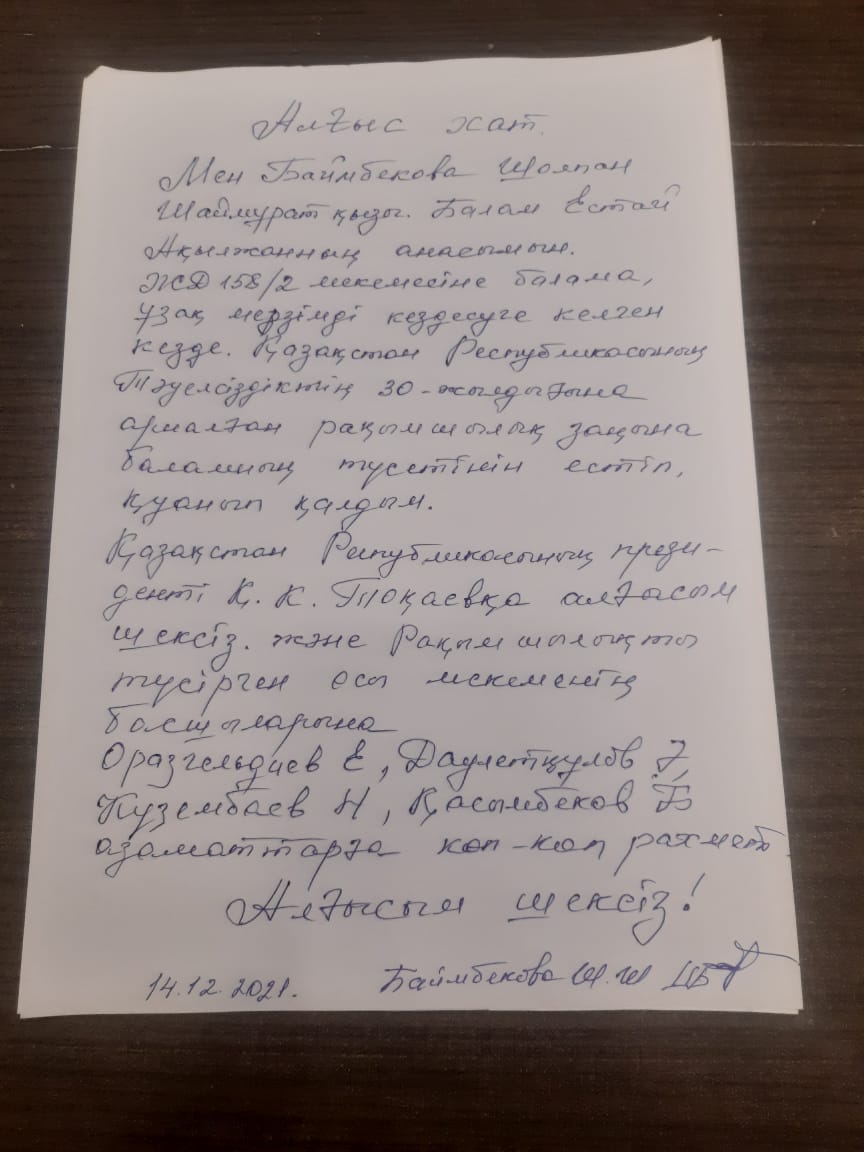 Алғыс хат.
Мен Баймбекова Шолпан
Шаймурат қызы. Балам Естай
Ақылжанның анасымын.
ЖД 158/2 мекемесіне балама,
ұзақ мерзімді кездесуге келген
кезде. Қазақстан Республикасының
Тәуелсіздіктің 30-жылдығына
арналған рақымшылық заңына
баламның түсетінін естіп,
қуанып қалдым.
Қазақстан Республикасының прези-
денті Қ. К. Тоқаевқа алғысым
шексіз. және Рақымшылықты
түсірген осы мекеменің
басшыларына
Оразгельдиев Е, Даулетқулов Ә,
Кузембаев Н, Қасымбеков Б
азаматтарға көп-көп рахмет.
Алғысым шексіз!
14.12.2021. Баймбекова Ш.Ш